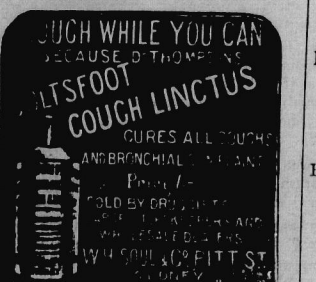 OUCH WHILE YOU CAN
BECAUSE DR THOMPSONS
LTSFOOT
COUCH LINCTUS
CURES ALL COUCHS
AND BRONCHIAL
Price 1/-
SOLD BY
AND
WHOLESALE DEALERS
W H SOUL & CO PITT ST
SYDNEY